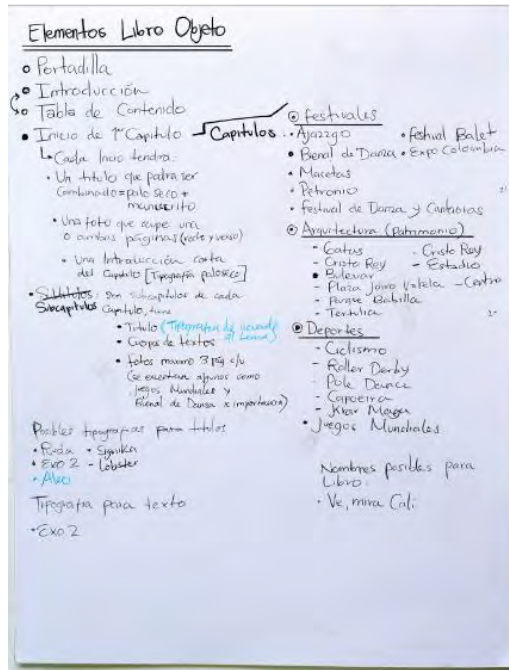 Elementos Libro Objeto
• Portadilla
• Introducción
• Tabla de Contenido
• Inicio de 1er Capitulo
↳ Cada Inicio tendra:
• Un titulo que podra ser
combinado = palo seco +
manuscrito
• Una foto que ocupe una
o ambas páginas (recto y verso)
• Una Introducción corta
del Capitulo [Tipografia paloseco]
• Subtitulos: son subcapitulos de cada
Subcapitulos Capitulo, tiene
• Titulo (Tipografia de acuerdo
al tema)
• Cuerpo de textos
• fotos maximo 3 pág c/u
(se exceptuan algunos como
Juegos Mundiales y
Bienal de Danza x importancia)
Posibles tipografias para titulos
• Ruda • Signika
• EXO 2 - Lobster
• Aleo
Tipografia para texto
• EXO 2
Capitulos:
festivales
• Ajazzgo
• festival Balet
• Bienal de Danza
• Expo Colombia
• Macetas
• Petronio
• festival de Danza y Cantoras
Arquitectura (Patrimonio)
- Gatos
- Cristo Rey
- Cristo Rey
- Estadio
• Bulevar
- Plaza Jairo Varela
- Centro
- Parque
- Tertulia
Deportes
- Ciclismo
- Roller Derby
- Pole Dance
- Capoeira
- Krav Maga
• Juegos Mundiales
Nombres posibles para
Libro:
• Ve, mira Cali